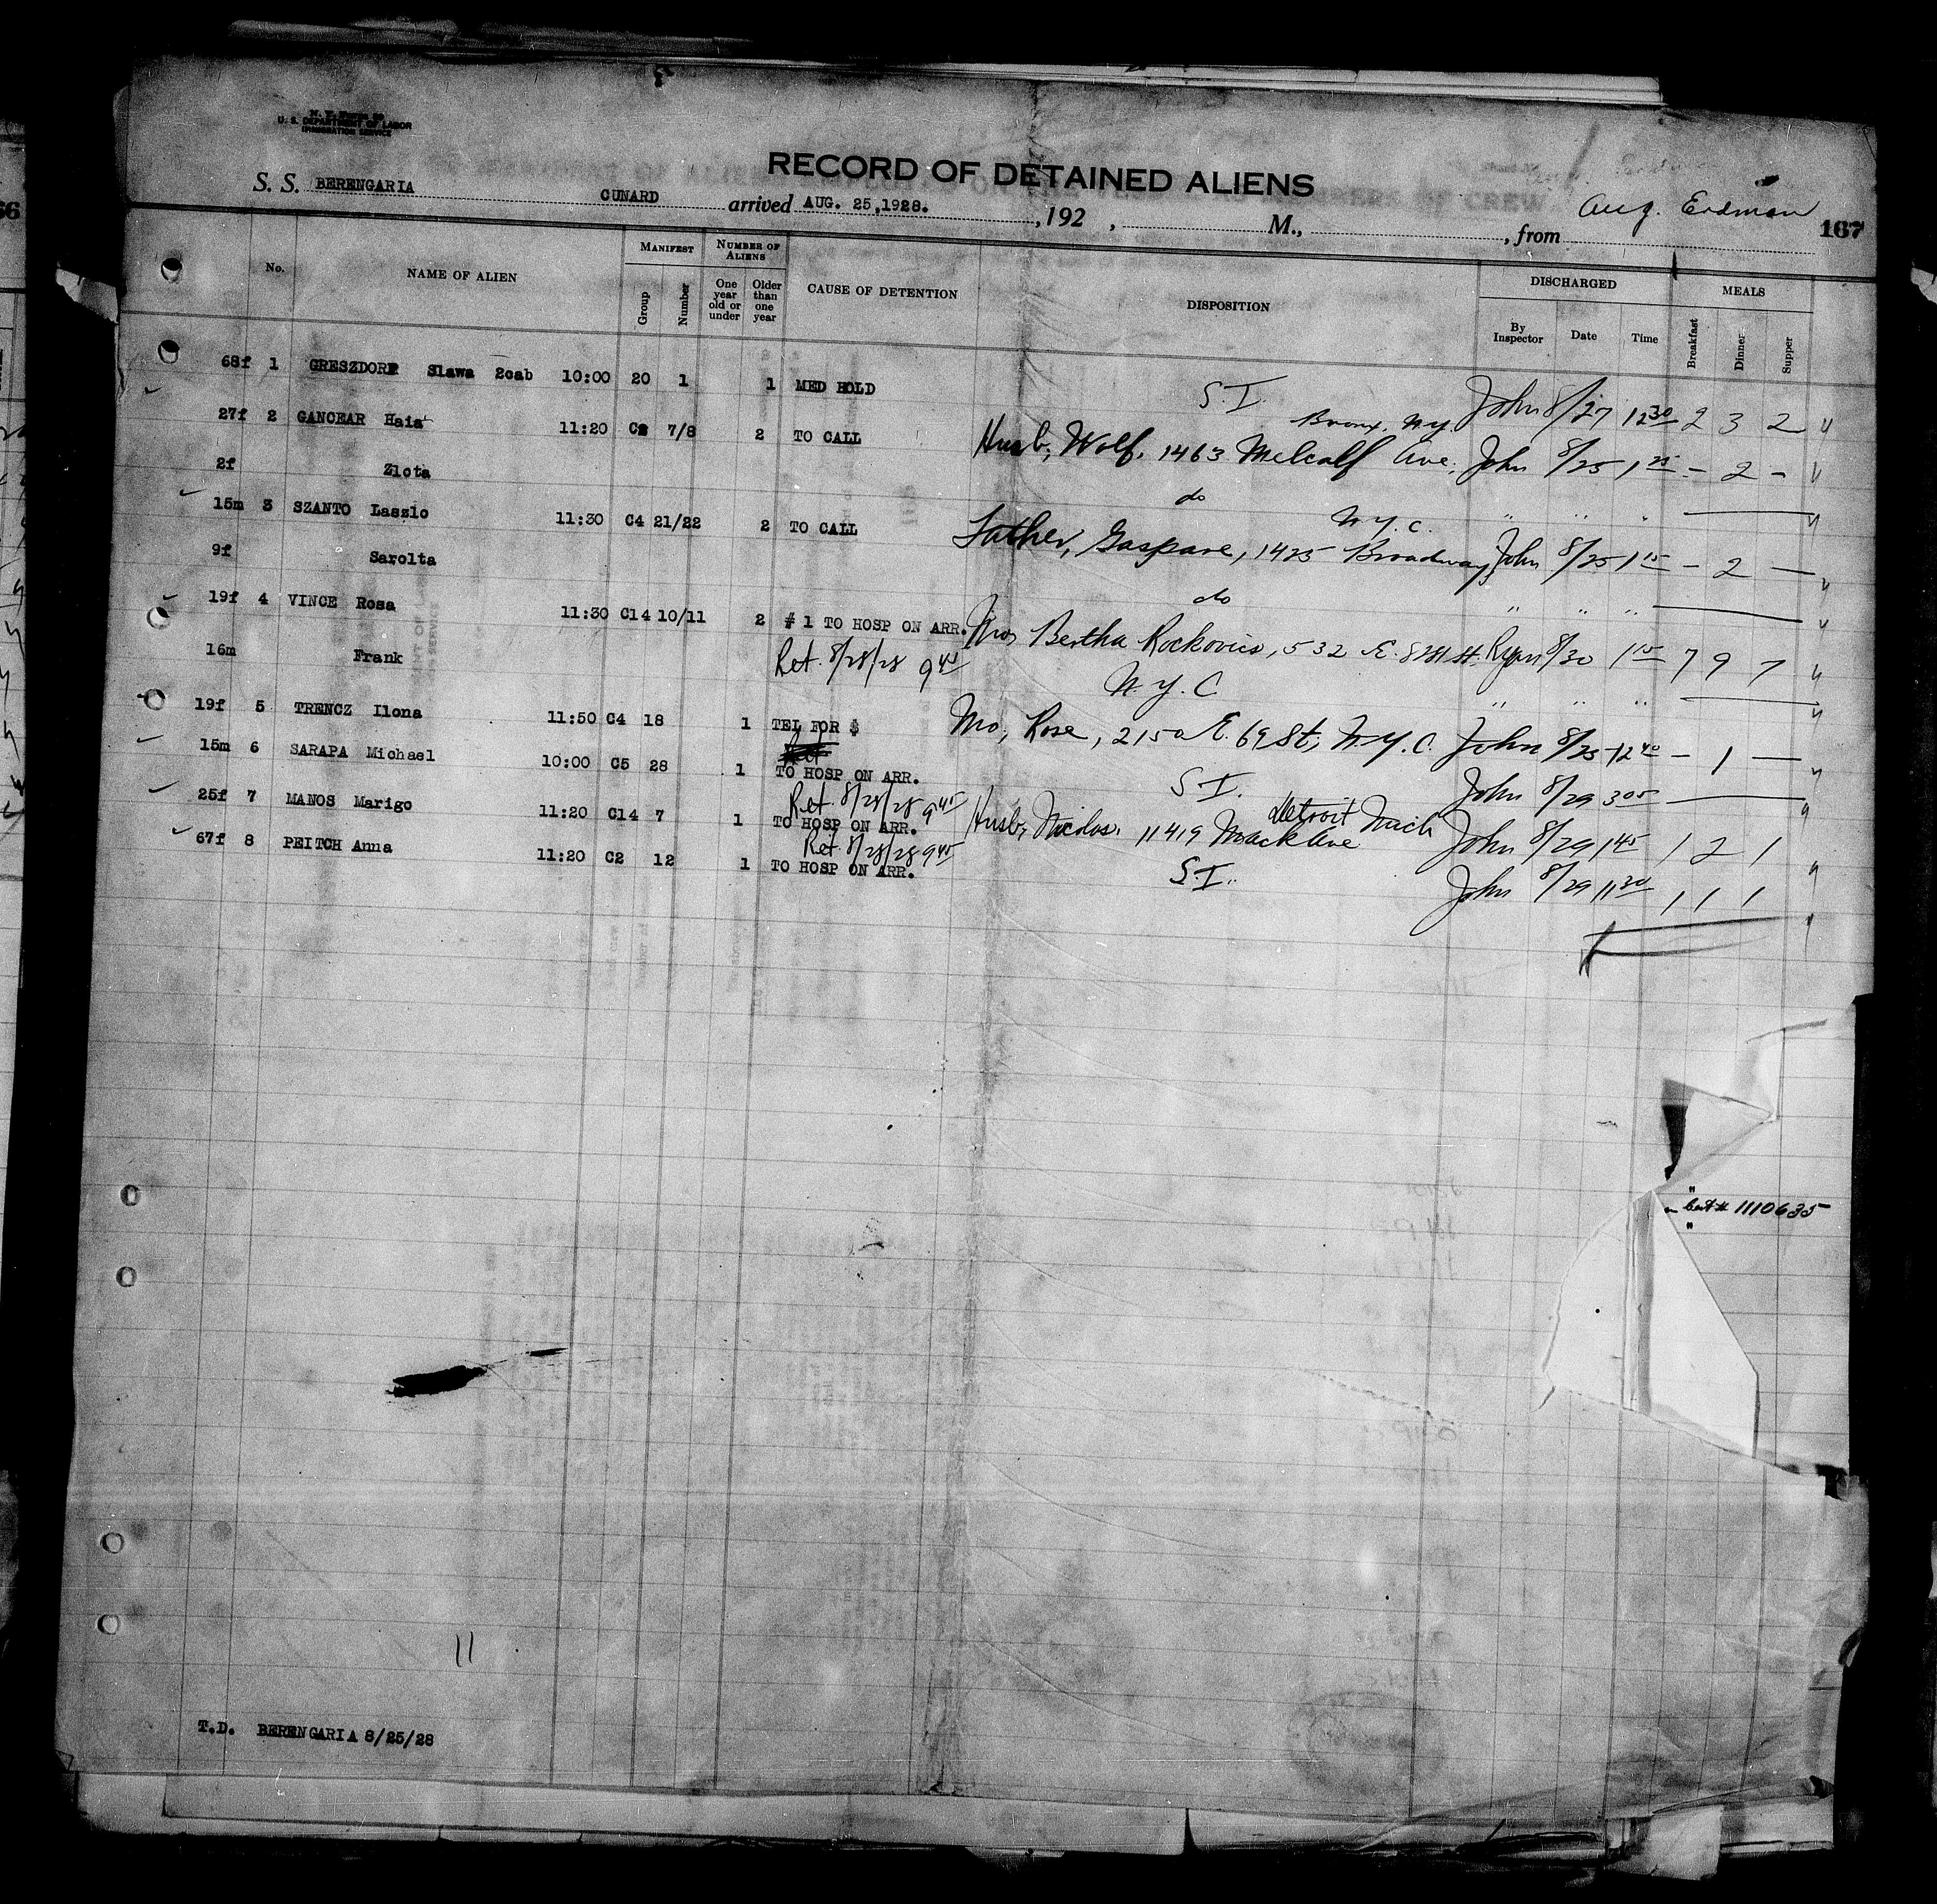 U. S. DEPARTMENT OF LABOR
IMMIGRATION SERVICE
RECORD OF DETAINED ALIENS
S. S. BERENGARIA CUNARD arrived AUG. 25,1928. ,192 , M., , from Aug. Erdman 167
No. NAME OF ALIEN MANIFEST Group Number NUMBER OF ALIENS One year old or under Older than one year CAUSE OF DETENTION DISPOSITION DISCHARGED By Inspector Date Time MEALS Breakfast Dinner Supper
68f 1 GRESZDORF Slawa 2cab 10:00 20 1 1 MED HOLD S.I. John 8/27 12 30 2 3 2
Bronx, N.Y.
27f 2 GANCEAR Haia 11:20 C2 7/8 2 TO CALL Husb, Wolf, 1463 Metcalf Ave, John 8/25 1 25 - 2 -
2f Zlota do " " "
N.Y.C.
15m 3 SZANTO Laszlo 11:30 C4 21/22 2 TO CALL Father, Gaspare, 1425 Broadway, John 8/25 1 15 - 2 -
9f Sarolta do " " "
19f 4 VINCE Rosa 11:30 C14 10/11 2 # 1 TO HOSP ON ARR. Mo, Bertha Rockovics, 532 E. 82 St. Ryan 8/30 1 15 7 9 7
16m Frank Ret. 8/28/28 9 45 N.Y.C " " "
19f 5 TRENCZ Ilona 11:50 C4 18 1 TEL FOR $ Mo, Rose, 2150 E. 69 St, N.Y.C. John 8/25 12 40 - 1 -
15m 6 SARAPA Michael 10:00 C5 28 1 TO HOSP ON ARR. S.I. John 8/29 3 05
Ret. 8/28/28 9 45 Detroit Mich
25f 7 MANOS Marigo 11:20 C14 7 1 TO HOSP ON ARR. Husb, Nicolas, 11419 Mack Ave John 8/29 1 45 1 2 1
Ret. 8/28/28 9 45
67f 8 PEITCH Anna 11:20 C2 12 1 TO HOSP ON ARR. S.I. John 8/29 11 30 1 1 1
cert # 1110635
11
T.D. BERENGARIA 8/25/28